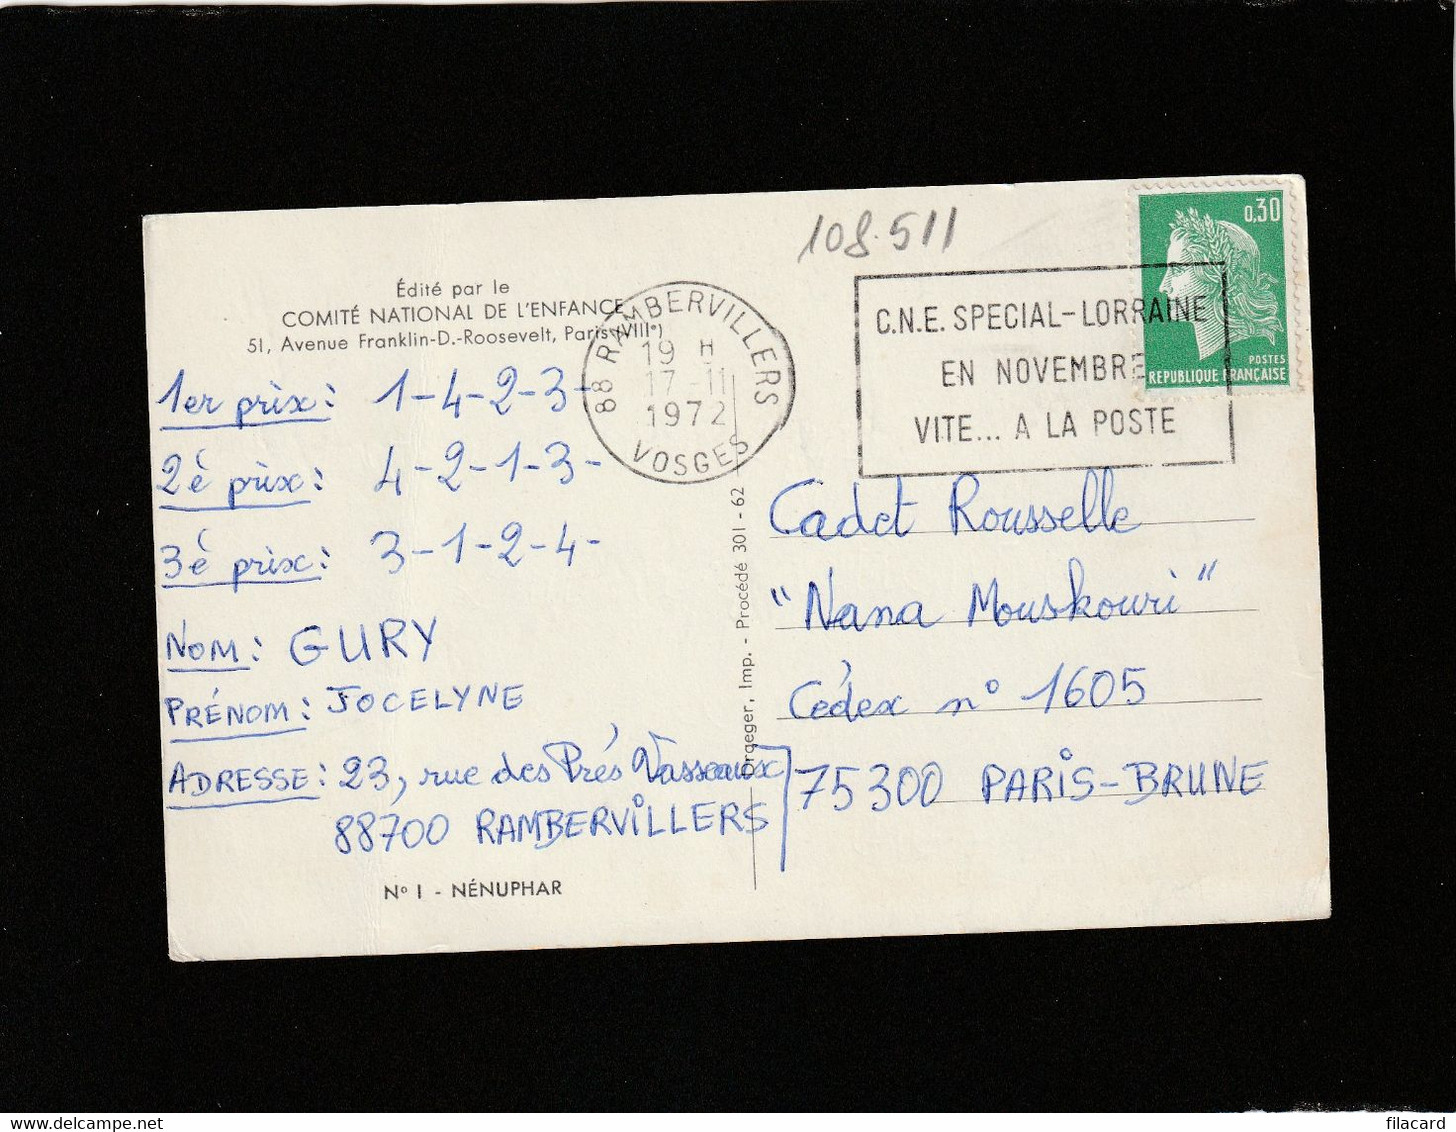 108.511
0,30
POSTES
REPUBLIQUE FRANÇAISE
C.N.E. SPECIAL-LORRAINE
EN NOVEMBRE
VITE... A LA POSTE
88 RAMBERVILLERS
19 H
17-11
1972
VOSGES
Édité par le
COMITÉ NATIONAL DE L'ENFANCE
51, Avenue Franklin-D.-Roosevelt, Paris (VIIIe)
1er prix: 1-4-2-3-
2è prix: 4-2-1-3-
3è prix: 3-1-2-4-
NOM: GURY
PRÉNOM: JOCELYNE
ADRESSE: 23, rue des Prés Vasseaux
88700 RAMBERVILLERS
N° 1 - NÉNUPHAR
Draeger, Imp. - Procédé 301-62
Cadet Rousselle
"Nana Mouskouri"
Cédex n° 1605
75300 PARIS-BRUNE
filacard